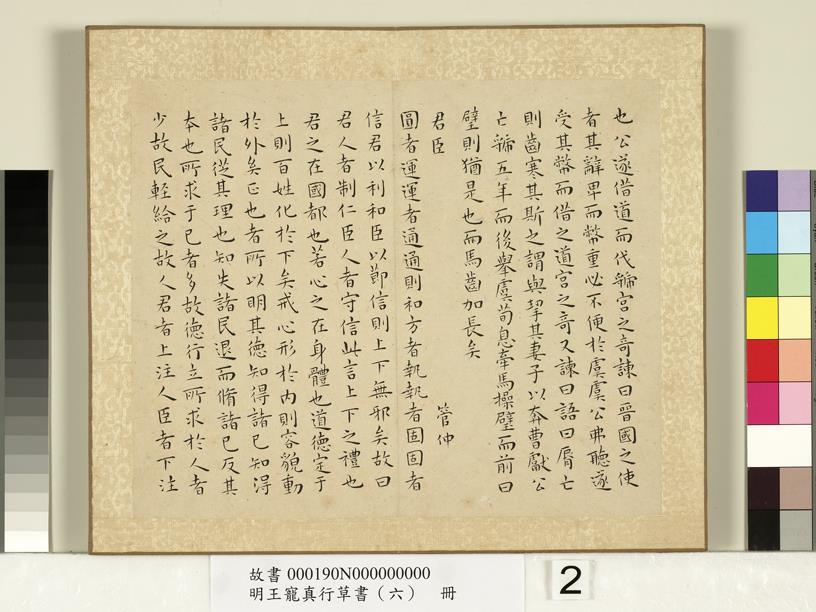 也公遂借道而伐虢宮之奇諫曰晉國之使
者其辭卑而幣重必不便於虞虞公弗聽遂
受其幣而借之道宮之奇又諫曰語曰脣亡
則齒寒其斯之謂與挈其妻子以奔曹獻公
亡虢五年而後舉虞荀息牽馬操璧而前曰
璧則猶是也而馬齒加長矣
君臣
管仲
圓者運運者通通則和方者執執者固固者
信君以利和臣以節信則上下無邪矣故曰
君人者制仁臣人者守信此言上下之禮也
君之在國都也若心之在身體也道德定于
上則百姓化於下矣戒心形於內則容貌動
於外矣正也者所以明其德知得諸己知得
諸民從其理也知失諸民退而脩諸己反其
本也所求于己者多故德行立所求於人者
少故民輕給之故人君者上注人臣者下注
故書 000190N000000000
明王寵真行草書（六） 冊
2